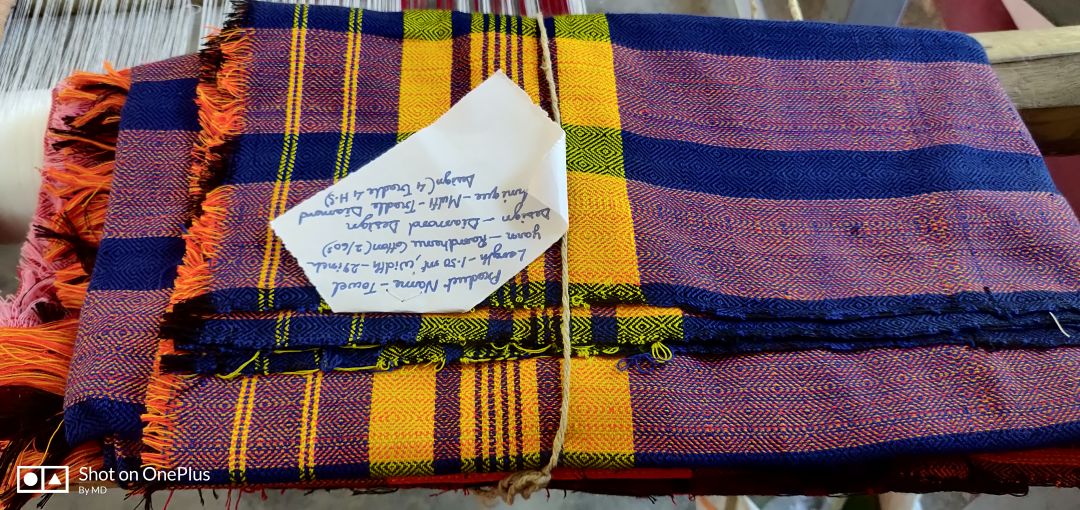 Product Name - Towel
Length - 1.50 mt, width - 29 inch
Yarn - Raamdhenu Cotton (2/60s)
Design - Diamond Design
Unique - Multi - Treadle Diamond
Design (4 Treadle 4 H.S)
Shot on OnePlus
By MD